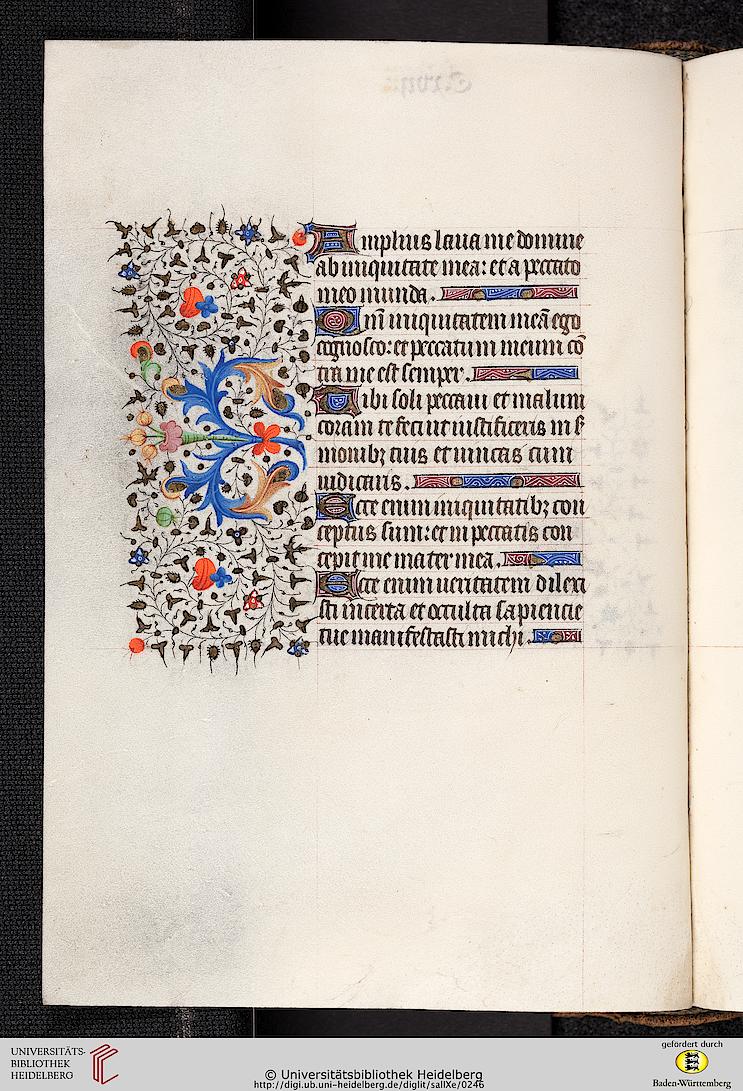 Amplius laua me domine
ab iniquitate mea: et a peccato
meo munda.
Qm̄ iniquitatem meā ego
cognosco: et peccatum meum cō
tra me est semper.
Tibi soli peccaui et malum
coram te feci ut iustificeris in s̄
monibꝫ tuis et uincas cum
iudicaris.
Ecce enim iniquitatibꝫ con
ceptus sum: et in peccatis con
cepit me mater mea.
Ecce enim ueritatem dilexi
sti incerta et occulta sapiencie
tue manifestasti michi.
UNIVERSITÄTS-
BIBLIOTHEK
HEIDELBERG
© Universitätsbibliothek Heidelberg
http://digi.ub.uni-heidelberg.de/diglit/sallXe/0246
gefördert durch
Baden-Württemberg